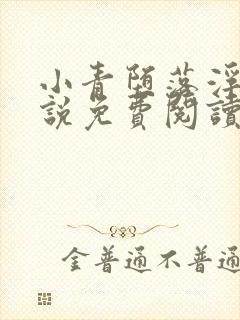 小青堕落淫
說免費閱讀
金普通不普通